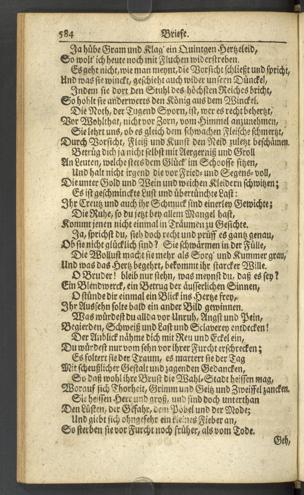 584 Briefe.
Ja hübe Gram und Klag' ein Quintgen Hertzeleid,
So wolt' ich heute noch mit Fluchen widerstreben.
Es geht nicht, wie man meynt, die Vorsicht schließt und spricht,
Und was sie winckt, geschieht auch wider unsern Dünckel,
Indem sie dort den Stuhl des höchsten Reiches bricht,
So hohlt sie anderwerts den König aus dem Winckel.
Die Noth, der Tugend Sporn, ist, wer es recht besehrt,
Vor Wohlthat, nicht vor Zorn, vom Himmel anzunehmen,
Sie lehrt uns, ob es gleich dem schwachen Fleische schmertzt,
Durch Vorsicht, Fleiß und Kunst den Neid zuletzt beschämen.
Betrüg dich ja nicht selbst mit Aergerniß und Groll
An Leuten, welche stets dem Glück im Schoosse sitzen,
Und halt nicht irgend die vor Fried- und Segens-voll,
Die unter Gold und Wein und weichen Kleidern schwitzen;
Es ist geschminckte Lust und übertünchte Last:
Ihr Creutz und auch ihr Schmuck sind einerley Gewichte;
Die Ruhe, so du jetzt bey allem Mangel hast,
Kommt jenen nicht einmal in Träumen zu Gesichte.
Ja, sprichst du, sieh doch recht und prüff es gantz genau,
Ob sie nicht glücklich sind? Sie schwärmen in der Fülle,
Die Wollust macht sie mehr als Sorg' und Kummer grau,
Und was das Hertz begehrt, bekommt ihr starcker Wille.
O Bruder! bleib nur stehn, was meynst du, daß es sey?
Ein Blendwerck, ein Betrug der äusserlichen Sinnen,
O stünde dir einmal ein Blick ins Hertze frey,
Ihr Aussehn solte bald ein ander Bild gewinnen.
Was würdest du allda vor Unruh, Angst und Pein,
Begierden, Schweiß und Last und Sclaverey entdecken!
Der Anblick nähme dich mit Reu und Eckel ein,
Du würdest nur vom sehn vor ihrer Furcht erschrecken;
Es foltert sie der Traum, es martert sie der Tag
Mit scheußlicher Gestalt und zagenden Gedancken,
So daß wohl ihre Brust die Wahl-Stadt heissen mag,
Worauf sich Thorheit, Grimm und Geitz und Zweiffel zancken.
Sie heissen Herr und groß, und sind doch unterthan
Den Lüsten, der Gefahr, dem Pöbel und der Mode;
Und giebt sich ohngefehr ein kleines Fieber an,
So sterben sie vor Furcht noch früher, als vom Tode.
Geh,